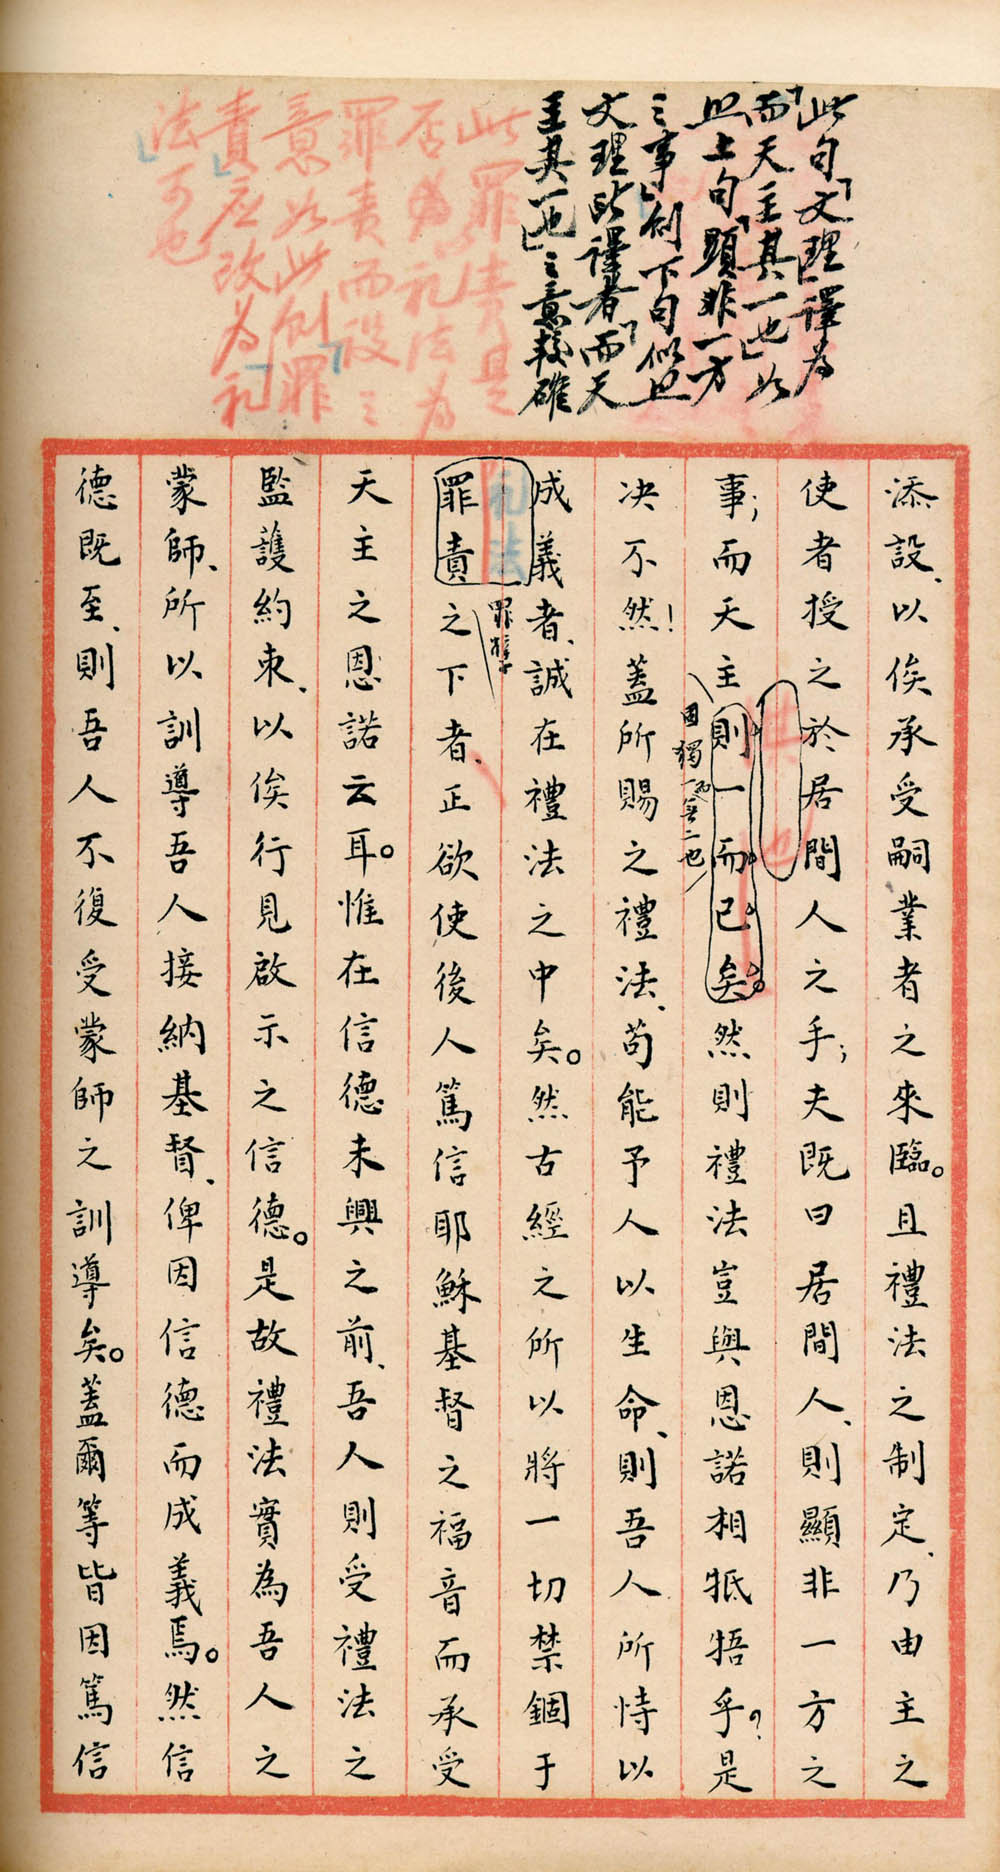 此句「文理」譯為
「而天主其一也」如
照上句「顯非一方
之事」則下句似照
文理此譯者「而天
主其一也」之意較確
此罪責是
否為礼法為
罪責而設之
意如此則「罪
責」应改為「礼
法」可也
添設、以俟承受嗣業者之來臨。且禮法之制定、乃由主之
使者授之於居間人之手；夫既曰居間人、則顯非一方之
事；而天主則一而已矣。然則禮法豈與恩諾相牴牾乎？是
固獨一而無二也
决不然！蓋所賜之禮法、苟能予人以生命、則吾人所恃以
成義者、誠在禮法之中矣。然古經之所以將一切禁錮于
礼法
罪孽
罪責之下者、正欲使後人篤信耶穌基督之福音而承受
天主之恩諾云耳。惟在信德未興之前、吾人則受禮法之
監護約束、以俟行見啟示之信德。是故禮法實為吾人之
蒙師、所以訓導吾人接納基督、俾因信德而成義焉。然信
德既至、則吾人不復受蒙師之訓導矣。蓋爾等皆因篤信